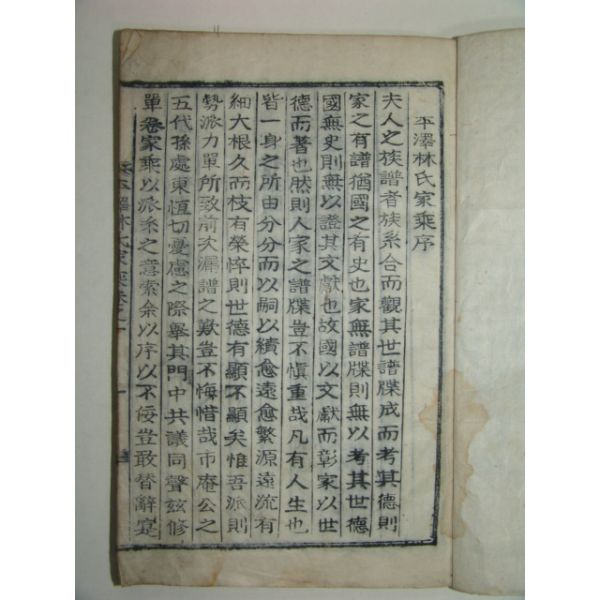 平澤林氏家乘序
夫人之族譜者族系合而觀其世譜牒成而考其德則
家之有譜猶國之有史也家無譜牒則無以考其世德
國無史則無以證其文獻也故國以文獻而彰家以世
德而著也然則人家之譜牒豈不愼重哉凡有人生也
皆一身之所由分分而以嗣以續愈遠愈繁源遠流有
細大根久而枝有榮悴則世德有顯不顯矣惟吾派則
勢派力單所致前次漏譜之歎豈不悔惜哉市庵公之
五代孫處東恒切憂慮之際擧其門中共議同聲玆修
單卷家乘以派系之意索余以序以不侫豈敢替辭寔
平澤林氏家乘卷之一